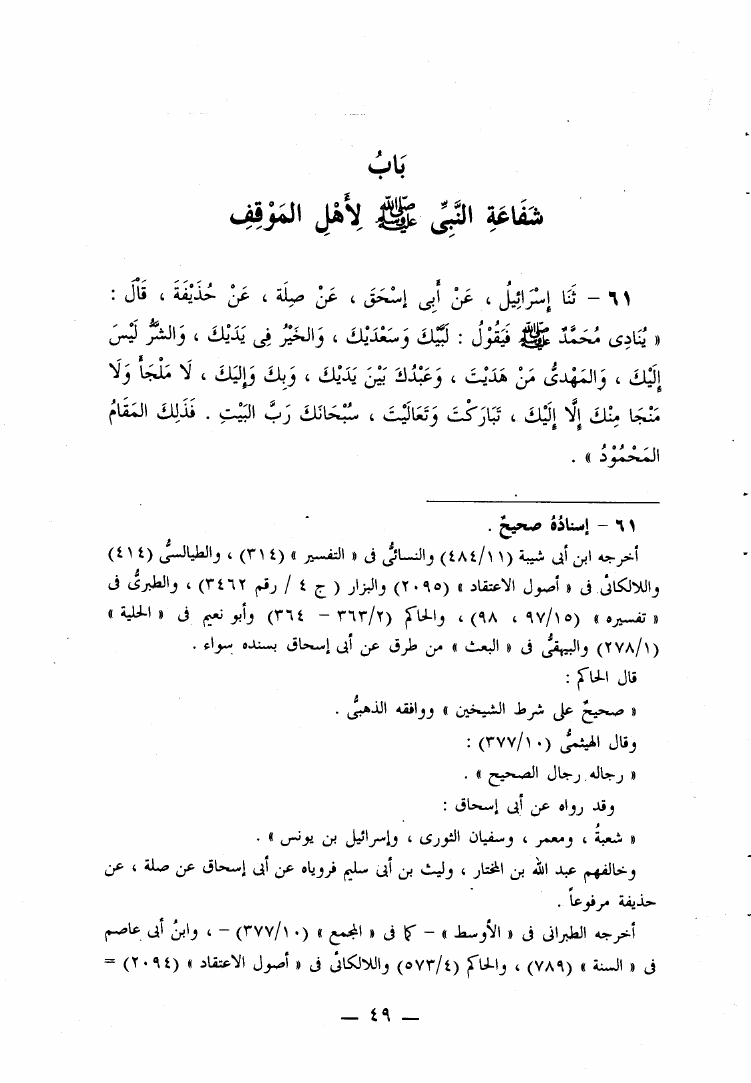 بَابُ
شَفَاعَةِ النَّبِىِّ ﷺ لِأَهْلِ المَوْقِفِ
٦١ – ثَنَا إِسْرَائِيلُ ، عَنْ أَبِى إِسْحَقَ ، عَنْ صِلَةَ ، عَنْ حُذَيْفَةَ ، قَالَ :
« يُنَادِى مُحَمَّدٌ ﷺ فَيَقُوْلُ : لَبَّيْكَ وَسَعْدَيْكَ ، وَالخَيْرُ فِى يَدَيْكَ ، وَالشَّرُّ لَيْسَ
إِلَيْكَ ، وَالمَهْدِىُّ مَنْ هَدَيْتَ ، وَعَبْدُكَ بَيْنَ يَدَيْكَ ، وَبِكَ وَإِلَيكَ ، لَا مَلْجَأَ وَلَا
مَنْجَا مِنْكَ إِلَّا إِلَيْكَ ، تَبَارَكْتَ وَتَعَالَيْتَ ، سُبْحَانَكَ رَبَّ البَيْتِ . فَذَلِكَ المَقَامُ
المَحْمُوْدُ » .
٦١ – إسنادُهُ صحيحٌ .
أخرجه ابن أبى شيبة (٤٨٤/١١) والنسائىُّ فى « التفسير » (٣١٤) ، والطيالسىُّ (٤١٤)
واللالكائى فى « أصول الاعتقاد » (٢٠٩٥) والبزار ( ج ٤ / رقم ٣٤٦٢) ، والطبرىُّ فى
« تفسيره » (٩٧/١٥ ، ٩٨) ، والحاكم (٣٦٣/٢ – ٣٦٤) وأبو نعيم فى « الحلية »
(٢٧٨/١) والبيهقىُّ فى « البعث » من طرق عن أبى إسحاق بسنده سواء .
قال الحاكم :
« صحيحٌ على شرط الشيخين » ووافقه الذهبىُّ .
وقال الهيثمىُّ (٣٧٧/١٠) :
« رجاله رجال الصحيح » .
وقد رواه عن أبى إسحاق :
« شعبةُ ، ومعمر ، وسفيان الثورى ، وإسرائيل بن يونس » .
وخالفهم عبد الله بن المختار ، وليث بن أبى سليم فروياه عن أبى إسحاق عن صلة ، عن
حذيفة مرفوعاً .
أخرجه الطبرانى فى « الأوسط » – كما فى « المجمع » (٣٧٧/١٠) – ، وابنُ أبى عاصم
فى « السنة » (٧٨٩) ، والحاكم (٥٧٣/٤) واللالكائى فى « أصول الاعتقاد » (٢٠٩٤) =
— ٤٩ —